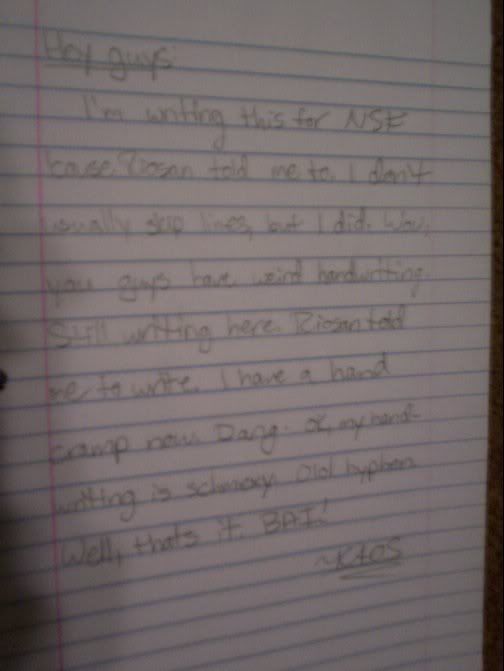 Hey guys
I'm writing this for NSE
'cause Riosan told me to. I don't
usually skip lines, but I did. Wow,
you guys have weird handwriting.
Still writing here. Riosan told
me to write. I have a hand
cramp now. Dang. Ok, my hand-
writing is Old hyphen
Well, thats it. BAI!
~KAOS